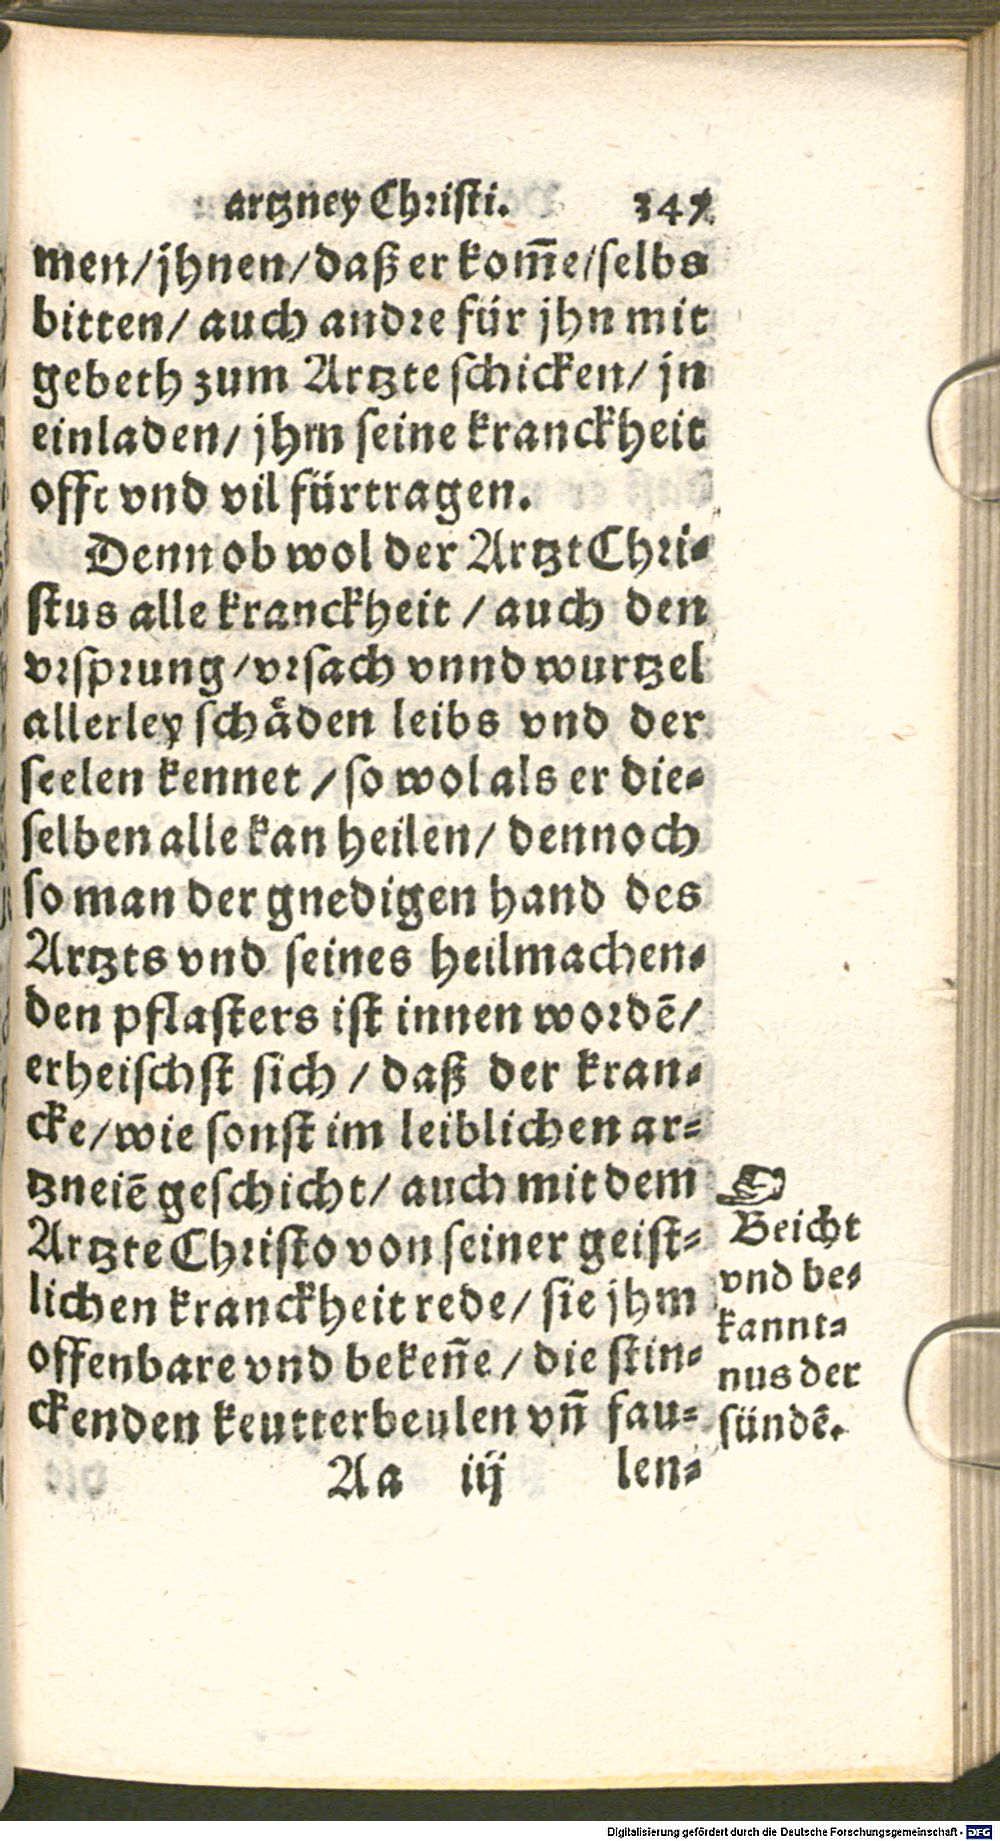 artzney Christi. 347
men/jhnen/daß er kom̃e/selbs
bitten/ auch andre für jhn mit
gebeth zum Artzte schicken/ jn
einladen/ jhm seine kranckheit
offt vnd vil fürtragen.
Denn ob wol der Artzt Chri-
stus alle kranckheit / auch den
vrsprung/vrsach vnnd wurtzel
allerley schåden leibs vnd der
seelen kennet / so wol als er die-
selben alle kan heilen/ dennoch
so man der gnedigen hand des
Artzts vnd seines heilmachen-
den pflasters ist innen wordē/
erheischst sich / daß der kran-
cke/wie sonst im leiblichen ar-
tzneiē geschicht/ auch mit dem
Artzte Christo von seiner geist-
lichen kranckheit rede/ sie jhm
offenbare vnd bekeñe / die stin-
ckenden keutterbeulen vñ fau-
☞
Beicht
vnd be-
kannt-
nus der
sündē.
Aa iij len-
Digitalisierung gefördert durch die Deutsche Forschungsgemeinschaft - DFG